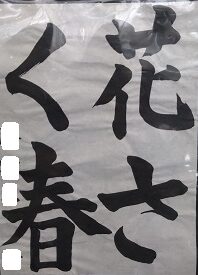 花さ
く春